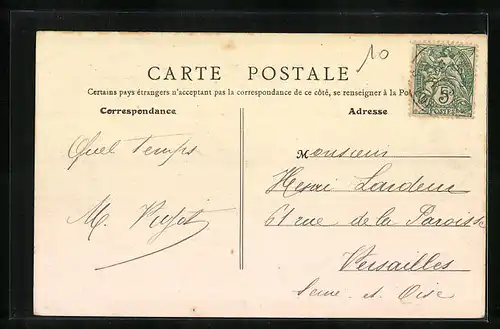 10
CARTE POSTALE
Certains pays étrangers n'acceptant pas la correspondance de ce côté, se renseigner à la Po
Correspondance
Adresse
5c
POSTES
Quel Temps
M.
Monsieur
Henri
61 rue de la Paroisse
Versailles
Seine et Oise